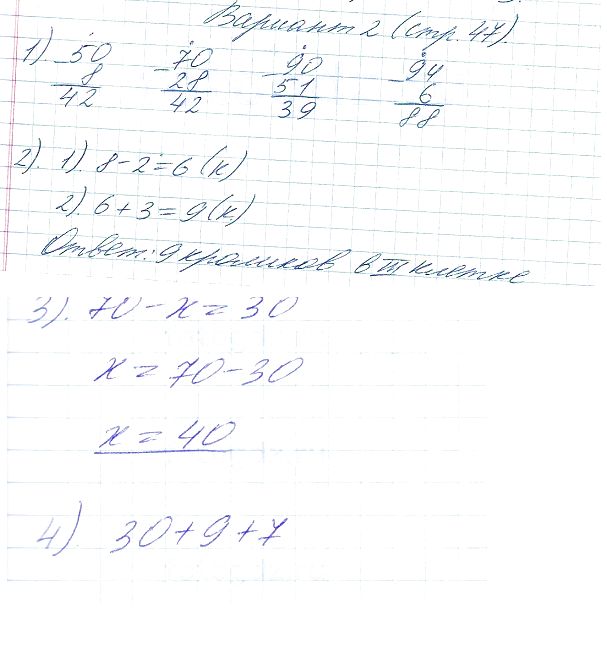 Вариант 2 (стр. 47).
1). 50 70 90 94
- 8 - 28 - 51 - 6
42 42 39 88
2). 1). 8 - 2 = 6 (к)
2). 6 + 3 = 9 (к)
Ответ: 9 кроликов в III клетке
3). 70 - х = 30
х = 70 - 30
х = 40
4) 30 + 9 + 7